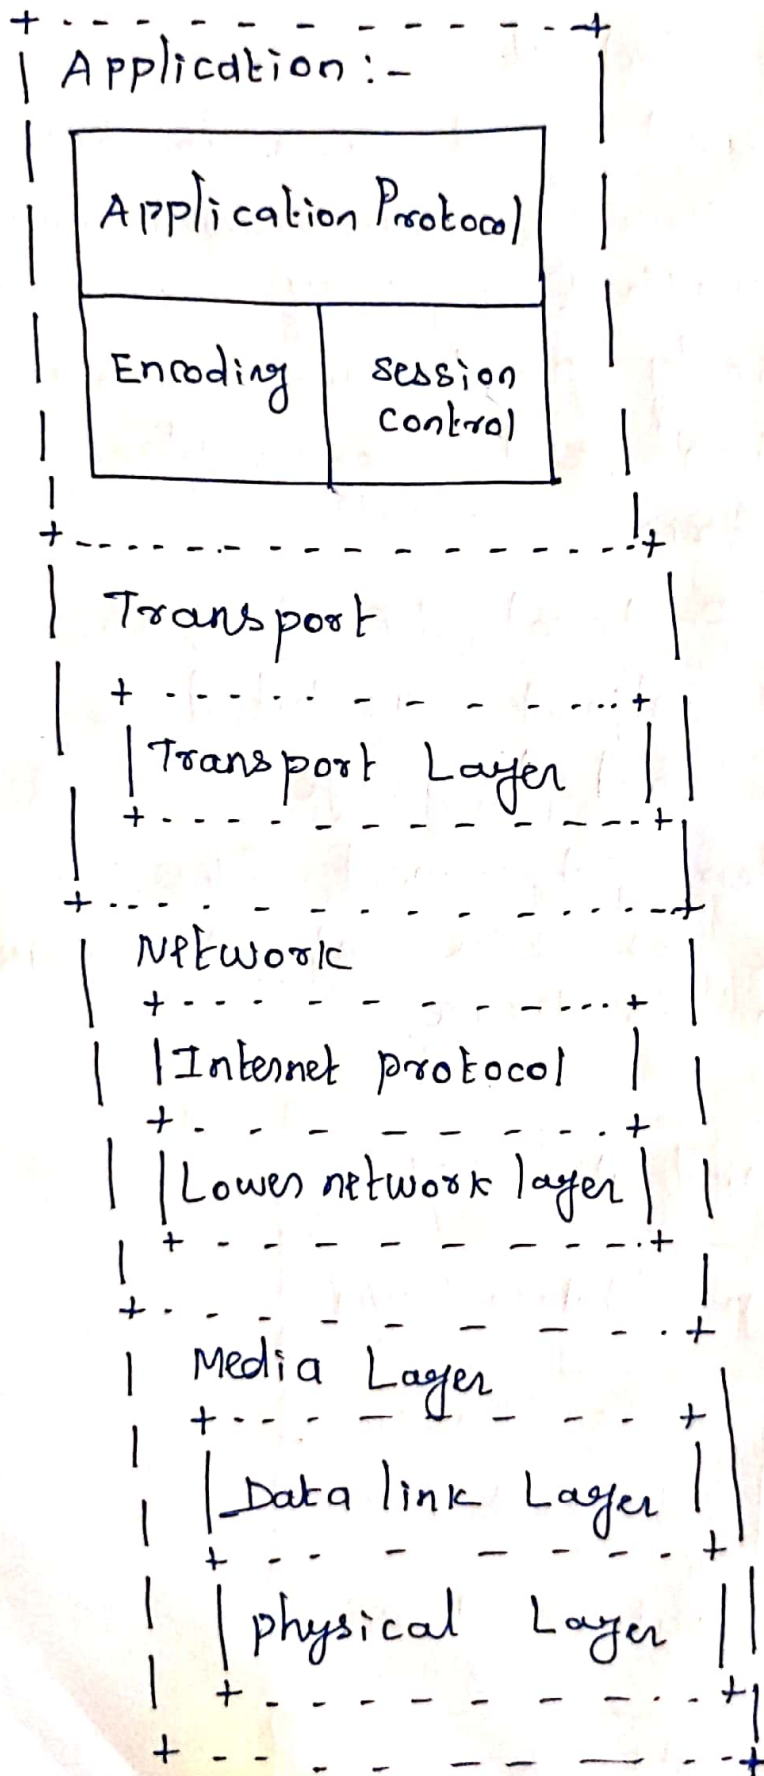 Application :-
Application Protocol
Encoding
session
control
Transport
Transport Layer
Network
Internet protocol
Lower network layer
Media Layer
Data link Layer
physical Layer